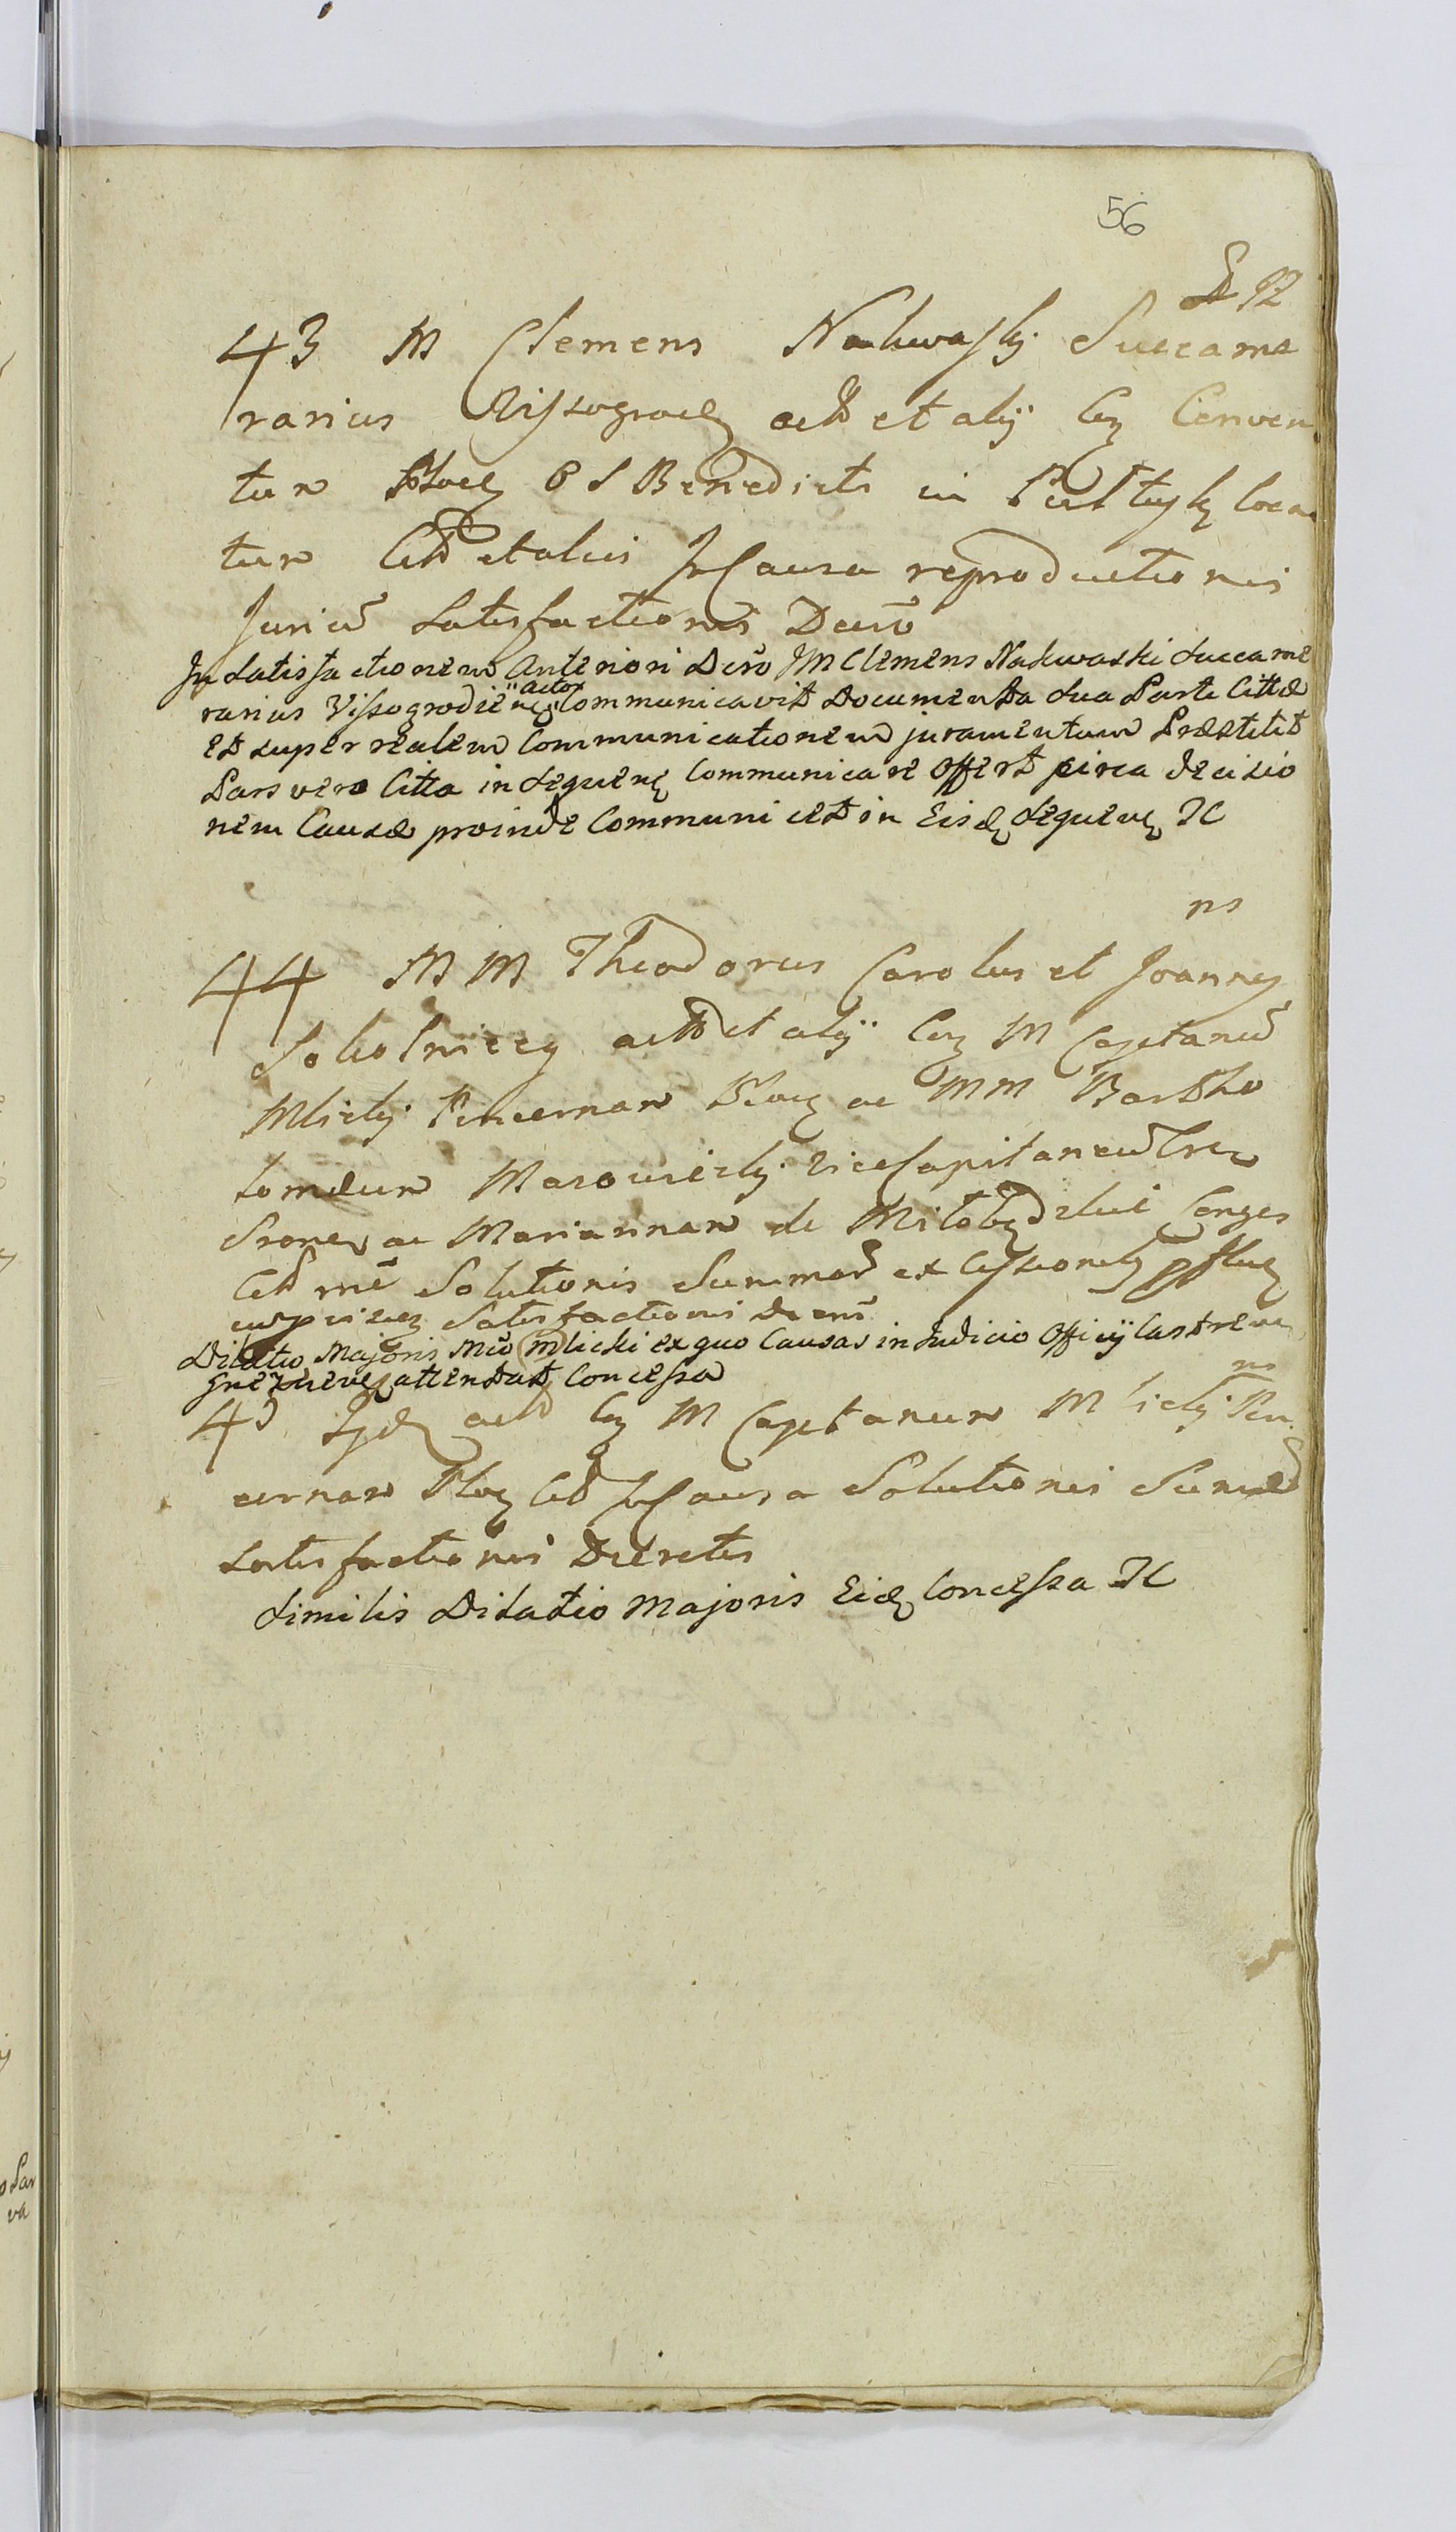 56
92
43 M Clemens Nakwaski Succame
rarius Vissogrod act et alij Conven
tum Ploc O S Benedicti in Pultusk loca
tum Citt et aliis In Causa reproductionis
Jurium Satisfactionis Decreto
In Satisfactionem Anteriori Decro JM Clemens Nakwaski Succame
rarius Vissogrodien actor Communicavit Documenta Sua Parti Cittæ
Et super realem Communicationem juramentum Præstitit
Pars vero Citta in Sequen Communicare offert circa decisio
nem Causæ proinde Communicet in Eisd Sequen IC
ns
44 M M Theodorus Carolus et Joannes
Sokolniccy act et alij M Cajetanum
Mlicki Pincernam Ploc ac MM Bartho
lomæum Mazowiecki ViceCapitaneum
ac Mariannam de Conges
Citt Solutionis Summar ex
Satisfactionis
Dilatio Majoris Mco Mlicki ex quo Causas in Judicio Officij Castren
attendat Concessa
ns
45 act M Cajetanum Mlicki Pin
cernam Ploc Citt In Causa Solutionis
Satisfactionis Decretis
Similis Dilatio Majoris Eid Concessa IC